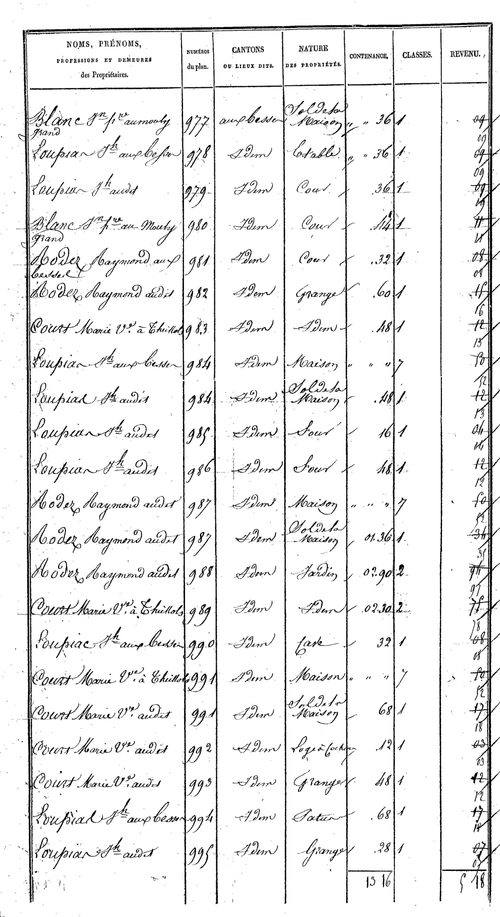 NOMS, PRÉNOMS, PROFESSIONS ET DEMEURES des Propriétaires. NUMÉROS du plan. CANTONS OU LIEUX DITS. NATURE DES PROPRIÉTÉS. CONTENANCE. CLASSES. REVENU.
Blanc Jn pre aumouly grand 977 aux besser Sol de la Maison " " 36 1 09
Loupiac Jh aux besser 978 Idem Etable " " 36 1 09
Loupiac Jh audit 979 Idem Cour 36 1 09
Blanc Jn pre au Mouly grand 980 Idem Cour .44 1 11
Rodez Raymond aux besses 981 Idem Cour .32 1 08
Rodez Raymond audit 982 Idem Grange .60 1 15
Court Marie Ve à 983 Idem Idem .48 1 12
Loupiac Jh aux besser 984 Idem Maison " " " 7 10
Loupiac Jh audit 984 Idem Sol de la Maison .48 1 12
Loupiac Jh audit 985 Idem Four 16 1 04
Loupiac Jh audit 986 Idem Four 48 1 12
Rodez Raymond audit 987 Idem Maison " " " 7
Rodez Raymond audit 987 Idem Sol de la Maison 01.36 1 34
Rodez Raymond audit 988 Idem Jardin 02.90 2
Court Marie Ve à 989 Idem Idem 02.30 2
Loupiac Jh aux besser 990 Idem 32 1 08
Court Marie Ve à 991 Idem Maison " " " 7 10
Court Marie Ve audit 991 Idem Sol de la Maison 68 1 17
Court Marie Ve audit 992 Idem Loge à Cochon .12 1 03
Court Marie Ve audit 993 Idem Grange 48 1 12
Loupiac Jh aux besser 994 Idem Patus .68 1 17
Loupiac Jh audit 995 Idem Grange .28 1 07
13 16 5 18